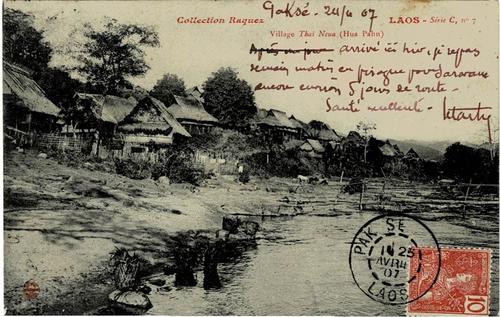 Collection Raquez
Paksé. 24/4 07
LAOS - Série C, n° 7
Village Thai Neua (Hua Pahn)
arrivé ici hier, je repars
demain matin en pirogue pour Saravane
encore environ 5 jours de route.
Santé excellente.
PAK-SE
25
AVRIL
07
LAOS
10